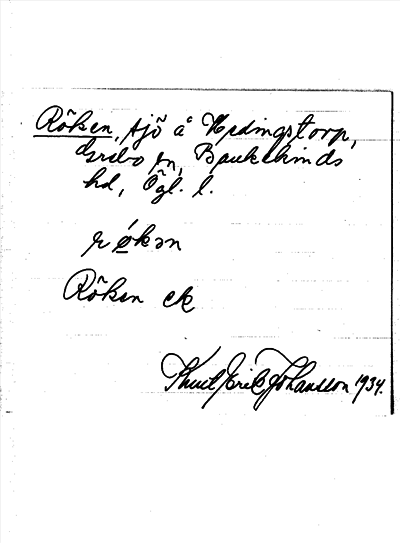 Röken, sjö å Hedingstorp,
Gribo sn, Bankekinds
hd, Ögl. l.
rø̀kən
Röken ek
Knut Erik Johansson 1934.